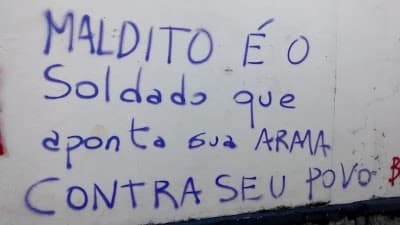 MALDITO É O
Soldado que
aponta sua ARMA
CONTRA SEU POVO